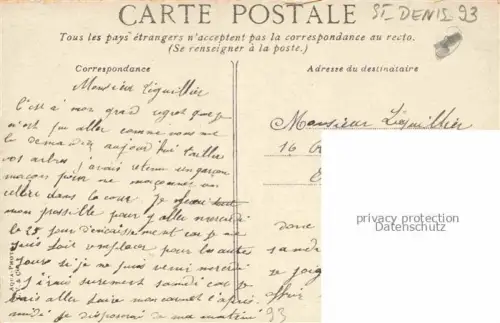 CARTE POSTALE
ST-DENIS 93
Tous les pays étrangers n'acceptent pas la correspondance au recto.
(Se renseigner à la poste.)
Correspondance
Adresse du destinataire
Monsieur Léguillier
C'est a mon grand regret que je
n'est pu aller comme vous me
le demandez aujourd'hui tailler
vos arbres j'avais retenu un garçon
maçons pour me maçonner un
cellier dans la cour. Je ferai tout
mon possible pour y aller mercredi
le 25 jour d'encaissement car je ne
suis fait remplacer pour les autres
jours si je ne puis venir mercredi
j'irais surement samedi car je
vais aller faire mon carnet l'après
midi je disposerai de ma matinée
Monsieur Léguillier
16
donc
samdi
se
privacy protection
Datenschutz
93